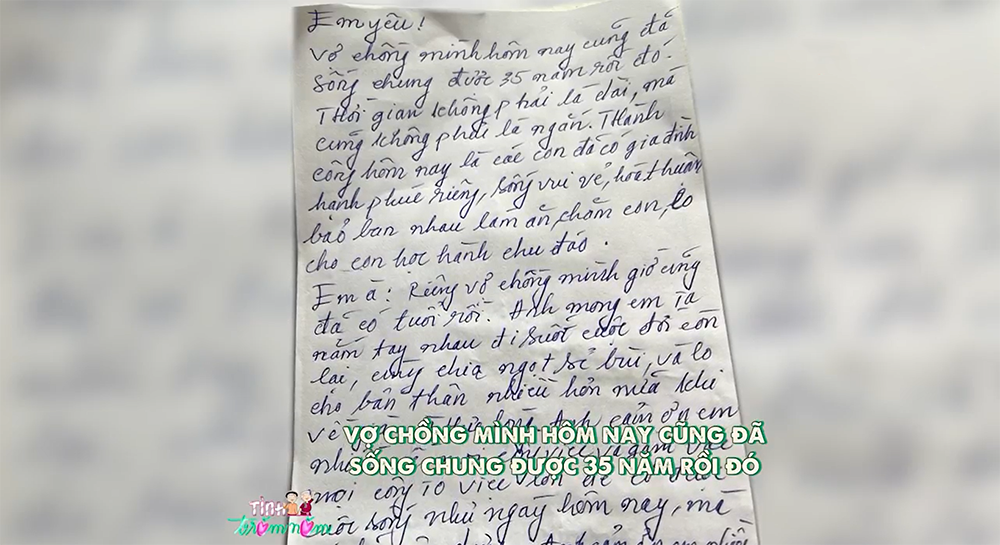 Em yêu!
Vợ chồng mình hôm nay cũng đã
sống chung được 35 năm rồi đó.
Thời gian không phải là dài, mà
cũng không phải là ngắn. Thành
công hôm nay là các con đã có gia đình
hạnh phúc riêng, sống vui vẻ, hòa thuận
bảo ban nhau làm ăn, chăm con, lo
cho con học hành chu đáo.
Em à: Riêng vợ chồng mình giờ cũng
đã có tuổi rồi. Anh mong em ta
nắm tay nhau đi suốt cuộc đời còn
lại, cùng chia ngọt sẻ bùi, và lo
cho bản thân nhiều hơn nữa khi
về Anh cảm ơn em
VỢ CHỒNG MÌNH HÔM NAY CŨNG ĐÃ
SỐNG CHUNG ĐƯỢC 35 NĂM RỒI ĐÓ
mọi công to việc lớn để có được
cuộc sống như ngày hôm nay, mà
Anh cảm ơn em nhiều
TÌNH
trăm năm